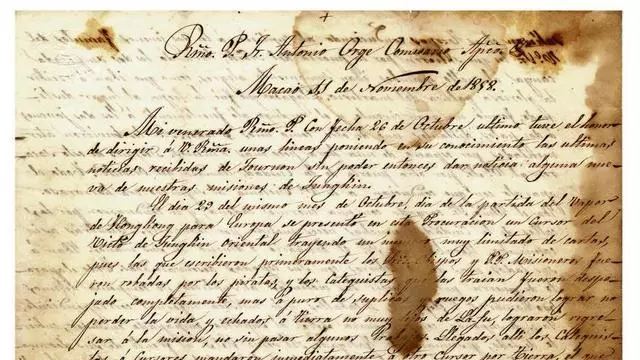 Rmo. P. Fr. Antonio Orge Comisario Apco.
Macao 11 de Noviembre de 1858.
Mi venerado Rmo. P. Con fecha 26 de Octubre ultimo tuve el honor
de dirigir á V. Rma. unas lineas poniendo en su conocimiento las ultimas
noticias recibidas de Touron sin poder entonces dar noticia alguna nue-
va de nuestras misiones de Tungkin.
El dia 29 del mismo mes de Octubre, dia de la partida del Vapor
de Hongkong para Europa se presentó en esta Procuracion un Cursor del
Victo. de Tungkin Oriental trayendo un muy limitado de cartas,
pues las que escribieron primeramente los y PP. Misioneros fue-
ron robadas por los piratas, y los Catequistas que las traian fueron despo-
jado completamente, mas á pura de suplicas y ruegos pudieron lograr no
perder la vida, y echados á tierra no muy lejos de lograron regre-
sar á la mision, no sin pasar algunos Llegados alli los Catequis-
tas ó Cursores mandaron inmediatamente otro Cursor por tierra,